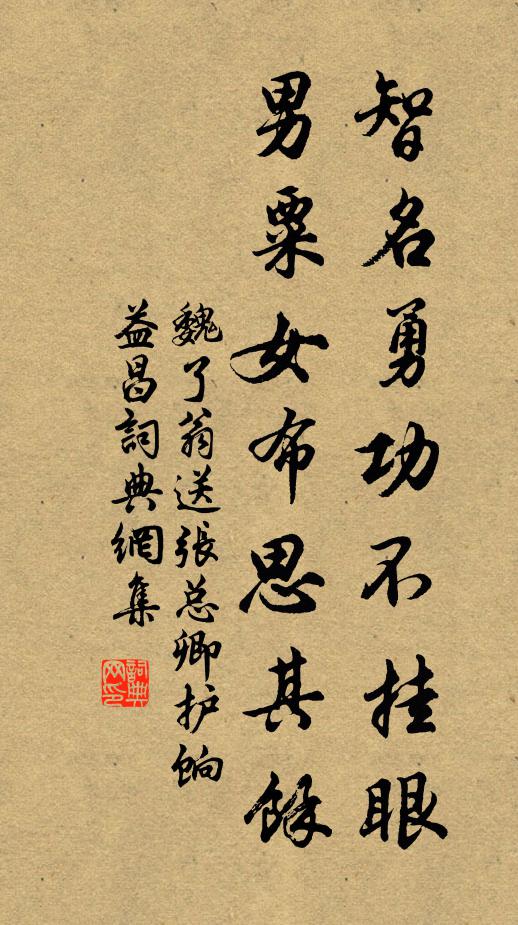 智名勇功不挂眼
男粟女布思其餘
魏了翁送張总卿护餉
益昌詞典網集
詞典
网印